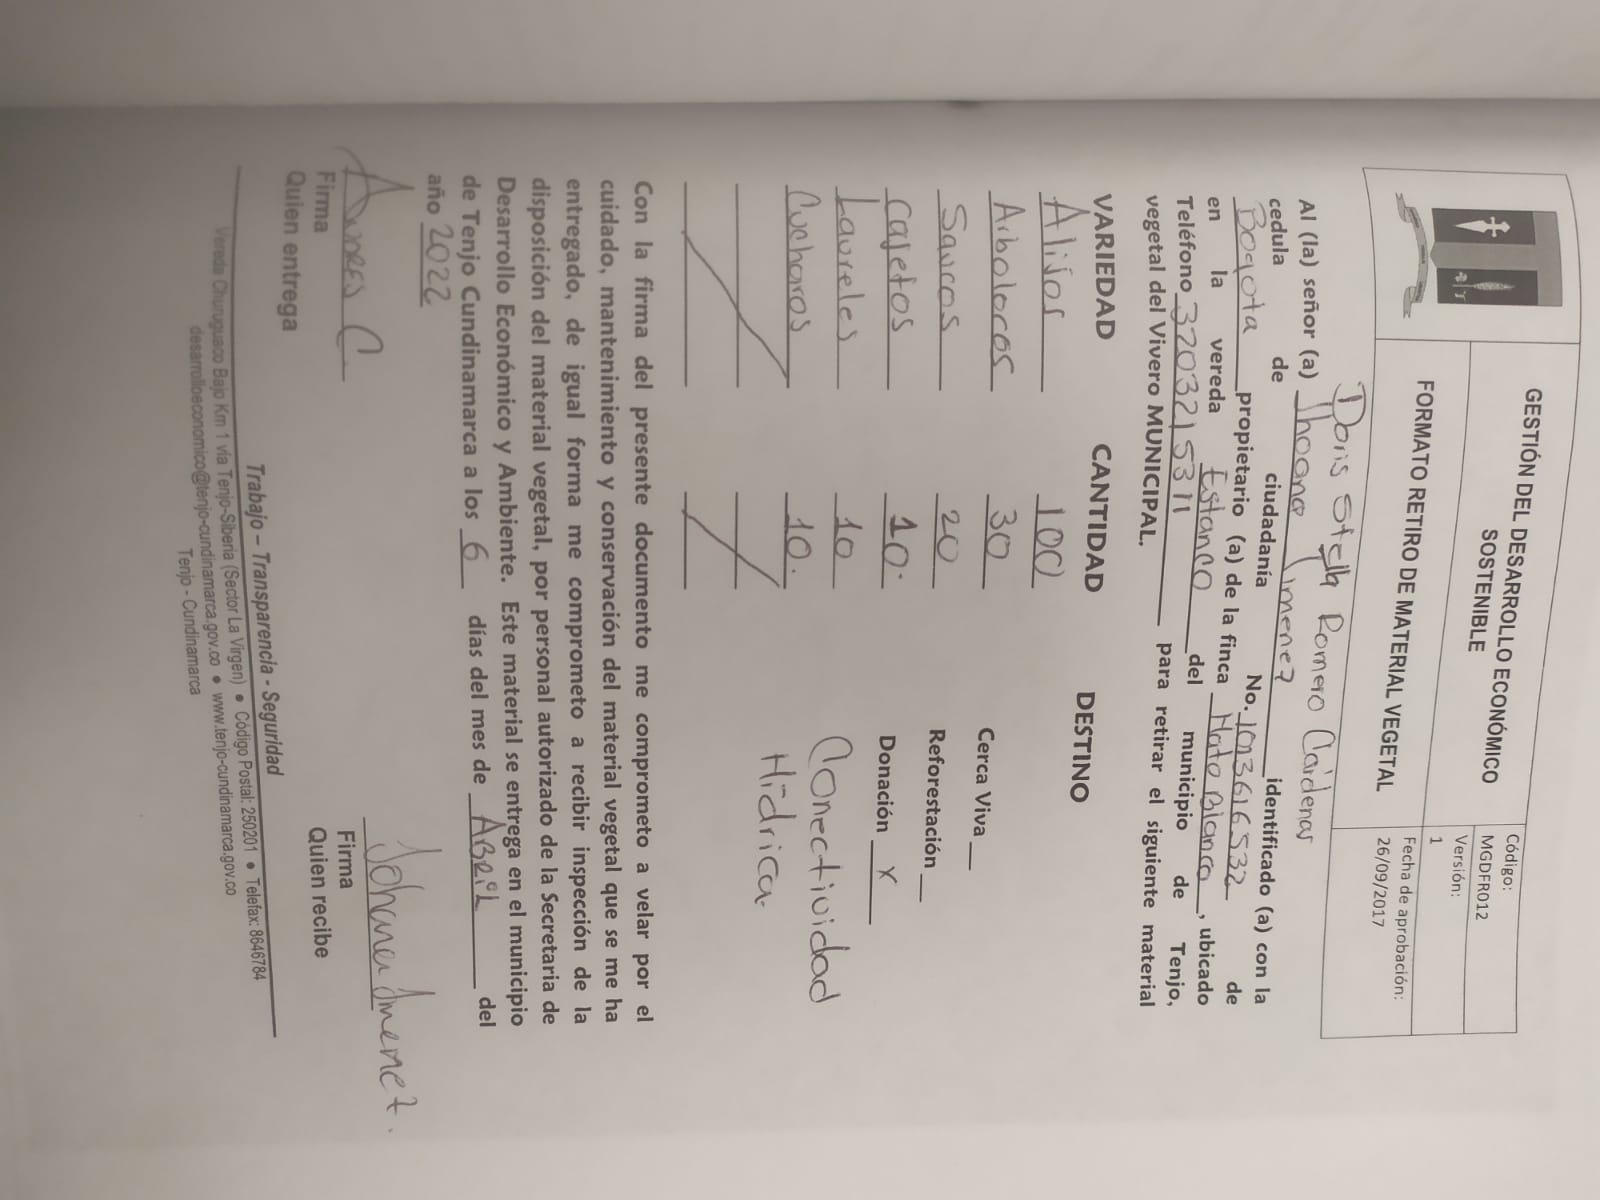 GESTIÓN DEL DESARROLLO ECONÓMICO
SOSTENIBLE
FORMATO RETIRO DE MATERIAL VEGETAL
Código:
MGDFR012
Versión:
1
Fecha de aprobación:
26/09/2017
Doris Stella Romero Cárdenas
Al (la) señor (a) Jhoana Jimenez identificado (a) con la
cedula de ciudadanía No. 1013616532 de
Bogota propietario (a) de la finca Hato Blanco, ubicado
en la vereda Estanco del municipio de Tenjo,
Teléfono 3203215311 para retirar el siguiente material
vegetal del Vivero MUNICIPAL.
VARIEDAD CANTIDAD DESTINO
Alisos 100
Arbolocos 30 Cerca Viva
Saucos 20 Reforestación
Cajetos 10. Donación X
Laureles 10 Conectividad
Cucharos 10. Hídrica.
Con la firma del presente documento me comprometo a velar por el
cuidado, mantenimiento y conservación del material vegetal que se me ha
entregado, de igual forma me comprometo a recibir inspección de la
disposición del material vegetal, por personal autorizado de la Secretaria de
Desarrollo Económico y Ambiente. Este material se entrega en el municipio
de Tenjo Cundinamarca a los 6 días del mes de ABRIL del
año 2022
Andres C. Johana Jimenez.
Firma Firma
Quien entrega Quien recibe
Trabajo – Transparencia - Seguridad
Vereda Churuguaco Bajo Km 1 vía Tenjo-Siberia (Sector La Virgen) ● Código Postal: 250201 ● Telefax: 8646784
desarrolloeconomico@tenjo-cundinamarca.gov.co ● www.tenjo-cundinamarca.gov.co
Tenjo - Cundinamarca